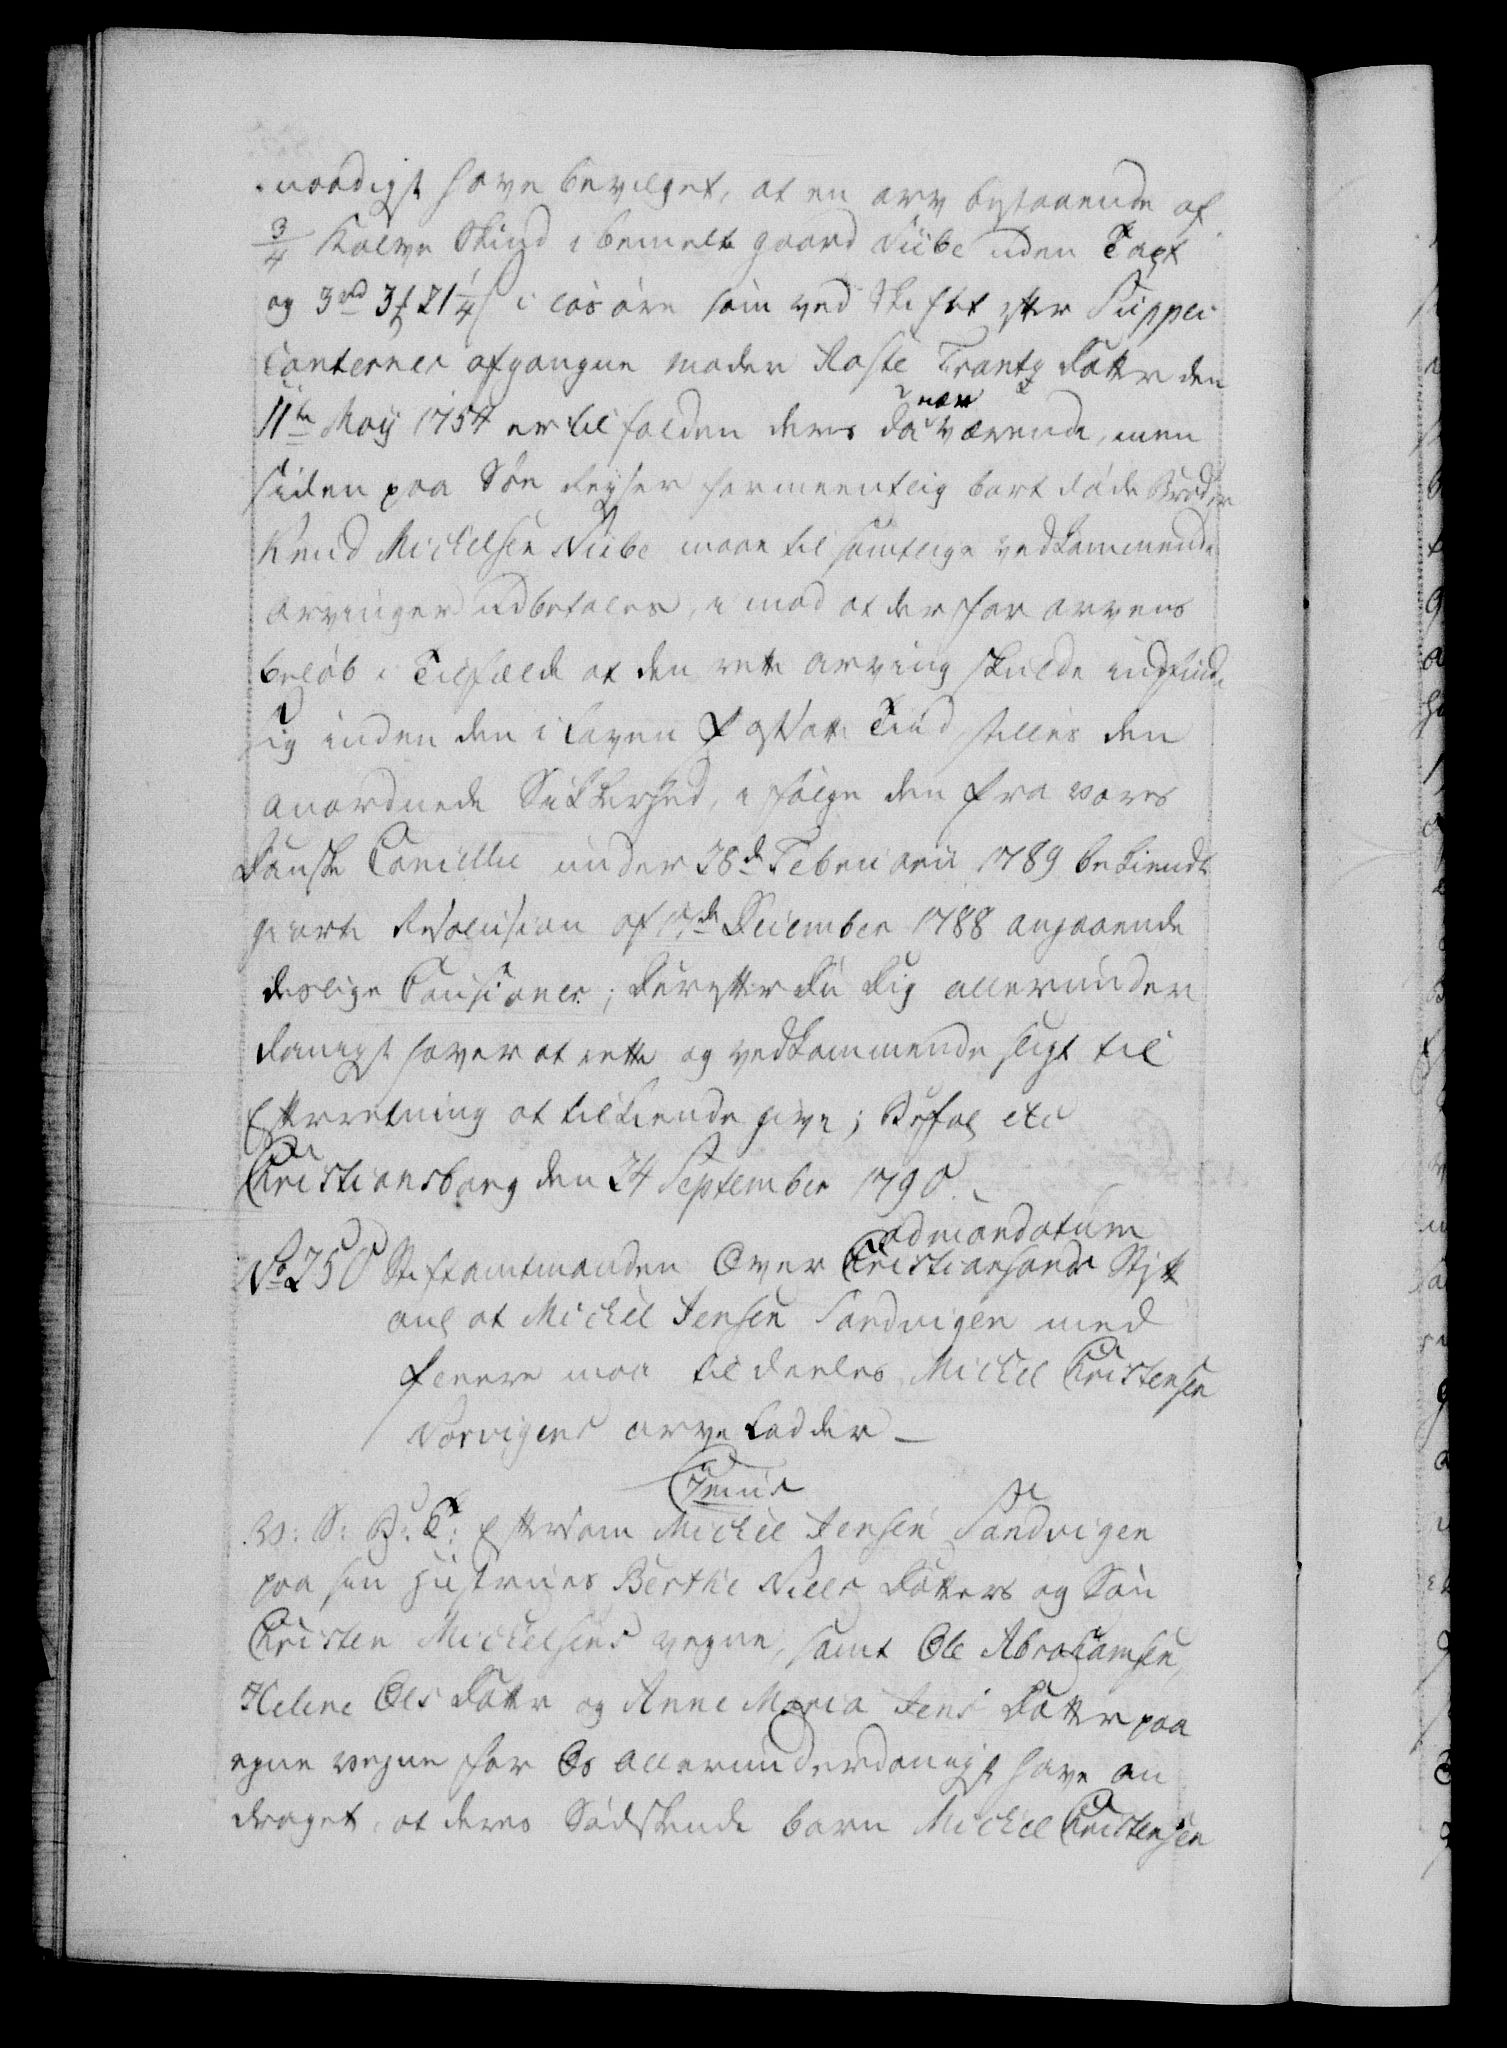 naadigst have bevilget, at en arv bestaaende af
3/4 Kalve Skind i bemelte gaard Niibe uden Bøxt
og 3 rd 3 ₰ 21 1/4 s i løsøre som ved Skiftet efter Suppli-
canternes afgangne moder Aase Tronds Datter den
11te May 1754 er tilfalden deres da nær værende, men
siden paa Søe Reyser formeentlig bortdøde Broder
Knud Michelsen Niibe maae til samtlige vedkommende
arvinger udbetales, imod at der for arvens
beløb i Tilfælde at den rette arving skulde indfinde
sig inden den i Loven fastsatte Tiid, stilles den
anordnede Sikkerhed, i følge den fra vores
Danske Cancellie under 28de Februarii 1789 bekiendt
giorte Resolution af de December 1788 angaaende
deslige Cautioner; Derefter du dig allerunder
danigst haver at rette og vedkommende sligt til
Efterretning at tilkiende give; Befal etc
Christiansborg den 24 September 1790.
ad mandatum
No 250 Stiftamtmanden Over Christiansands Stift
anl at Michel Jensen Sandvigen med
fleere maa tildeeles Michel Christensen
Norvigens arve Lodder —
Gratis
V: G: B: T: Eftersom Michel Jensen Sandvigen
paa sin Hustrues Berthe Niels Datters og Søn
Christen Michelsens vegne, samt Ole Abrahamsen,
Helene Ols Datter og Anne Maria Jens Datter paa
egne vegne for Os allerunderdanigst have an
draget, at deres Sødskende barn Michel Christensen